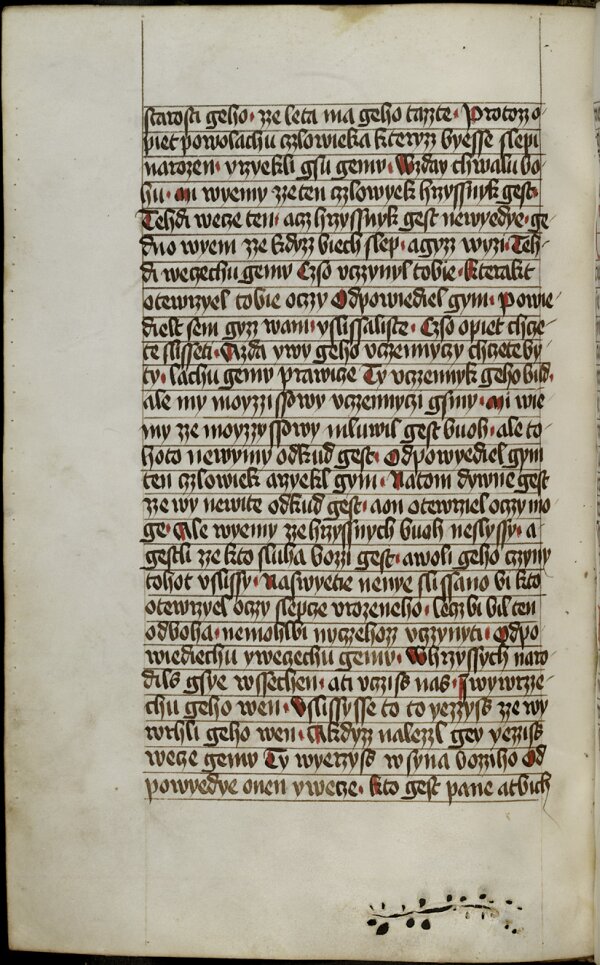 starosti geho· zze leta ma geho tazzte· Protozz o-
piet powolachu czlowieka kteryzz byesse slepi
narozen· vrzyekli gsu gemu· Wzday chwalu bo-
hu· mi wyemy zze ten czlowyek hrzyssnyk gest·
Tehdi wecze ten· acz hrzyssnyk gest newyedye· ge-
dno wyem zze kdyzz biech slep· a gyzz wyzi· Teh-
di wecechu gemu Czso vczynyl tobie· kterakt
otewrzyel tobie oczy Odpowiediel gym· Powie-
dielt sem gyzz wam· y slissaliste· Czso opiet chcze-
te slisseti· Azda y wy geho vczennyczy chczete by-
ty· lachu gemu prawicze Ty vczennyk geho bud·
ale my moyzzissowy vczennyczi gsmy· mi wie-
my zze moyzzyssowy mluwil gest buoh· ale to-
hoto newymy odkud gest· Odpowyediel gym
ten czlowiek a rzyekl gym· Natom dywne gest
zze wy newite odkud gest· a on otewrziel oczy mo-
ge· Ale wyemy zze hrzyssnych buoh neslyssy· a
gestli zze kto sluha bozzi gest· a woli geho czyny
tohot vslissy· Na swyetie nenye slissano bi kto
otewrzyel oczy slepcze vrozeneho· lecz bi bil ten
od boha· nemohl bi nyczehozz vczynyti· Odpo-
wiediechu y wecechu gemu· W hrzyssych naro-
dils gsye wssechen· a ti vcziss nas· I wywrzye-
chu geho wen· Vslissysse to to yezzyss zze wy-
wrhli geho wen· A kdyzz nalezzl gey yezziss
wecze gemu Ty wyerzyss w syna bozziho Od-
powyedye onen y wecze· kto gest pane at bich